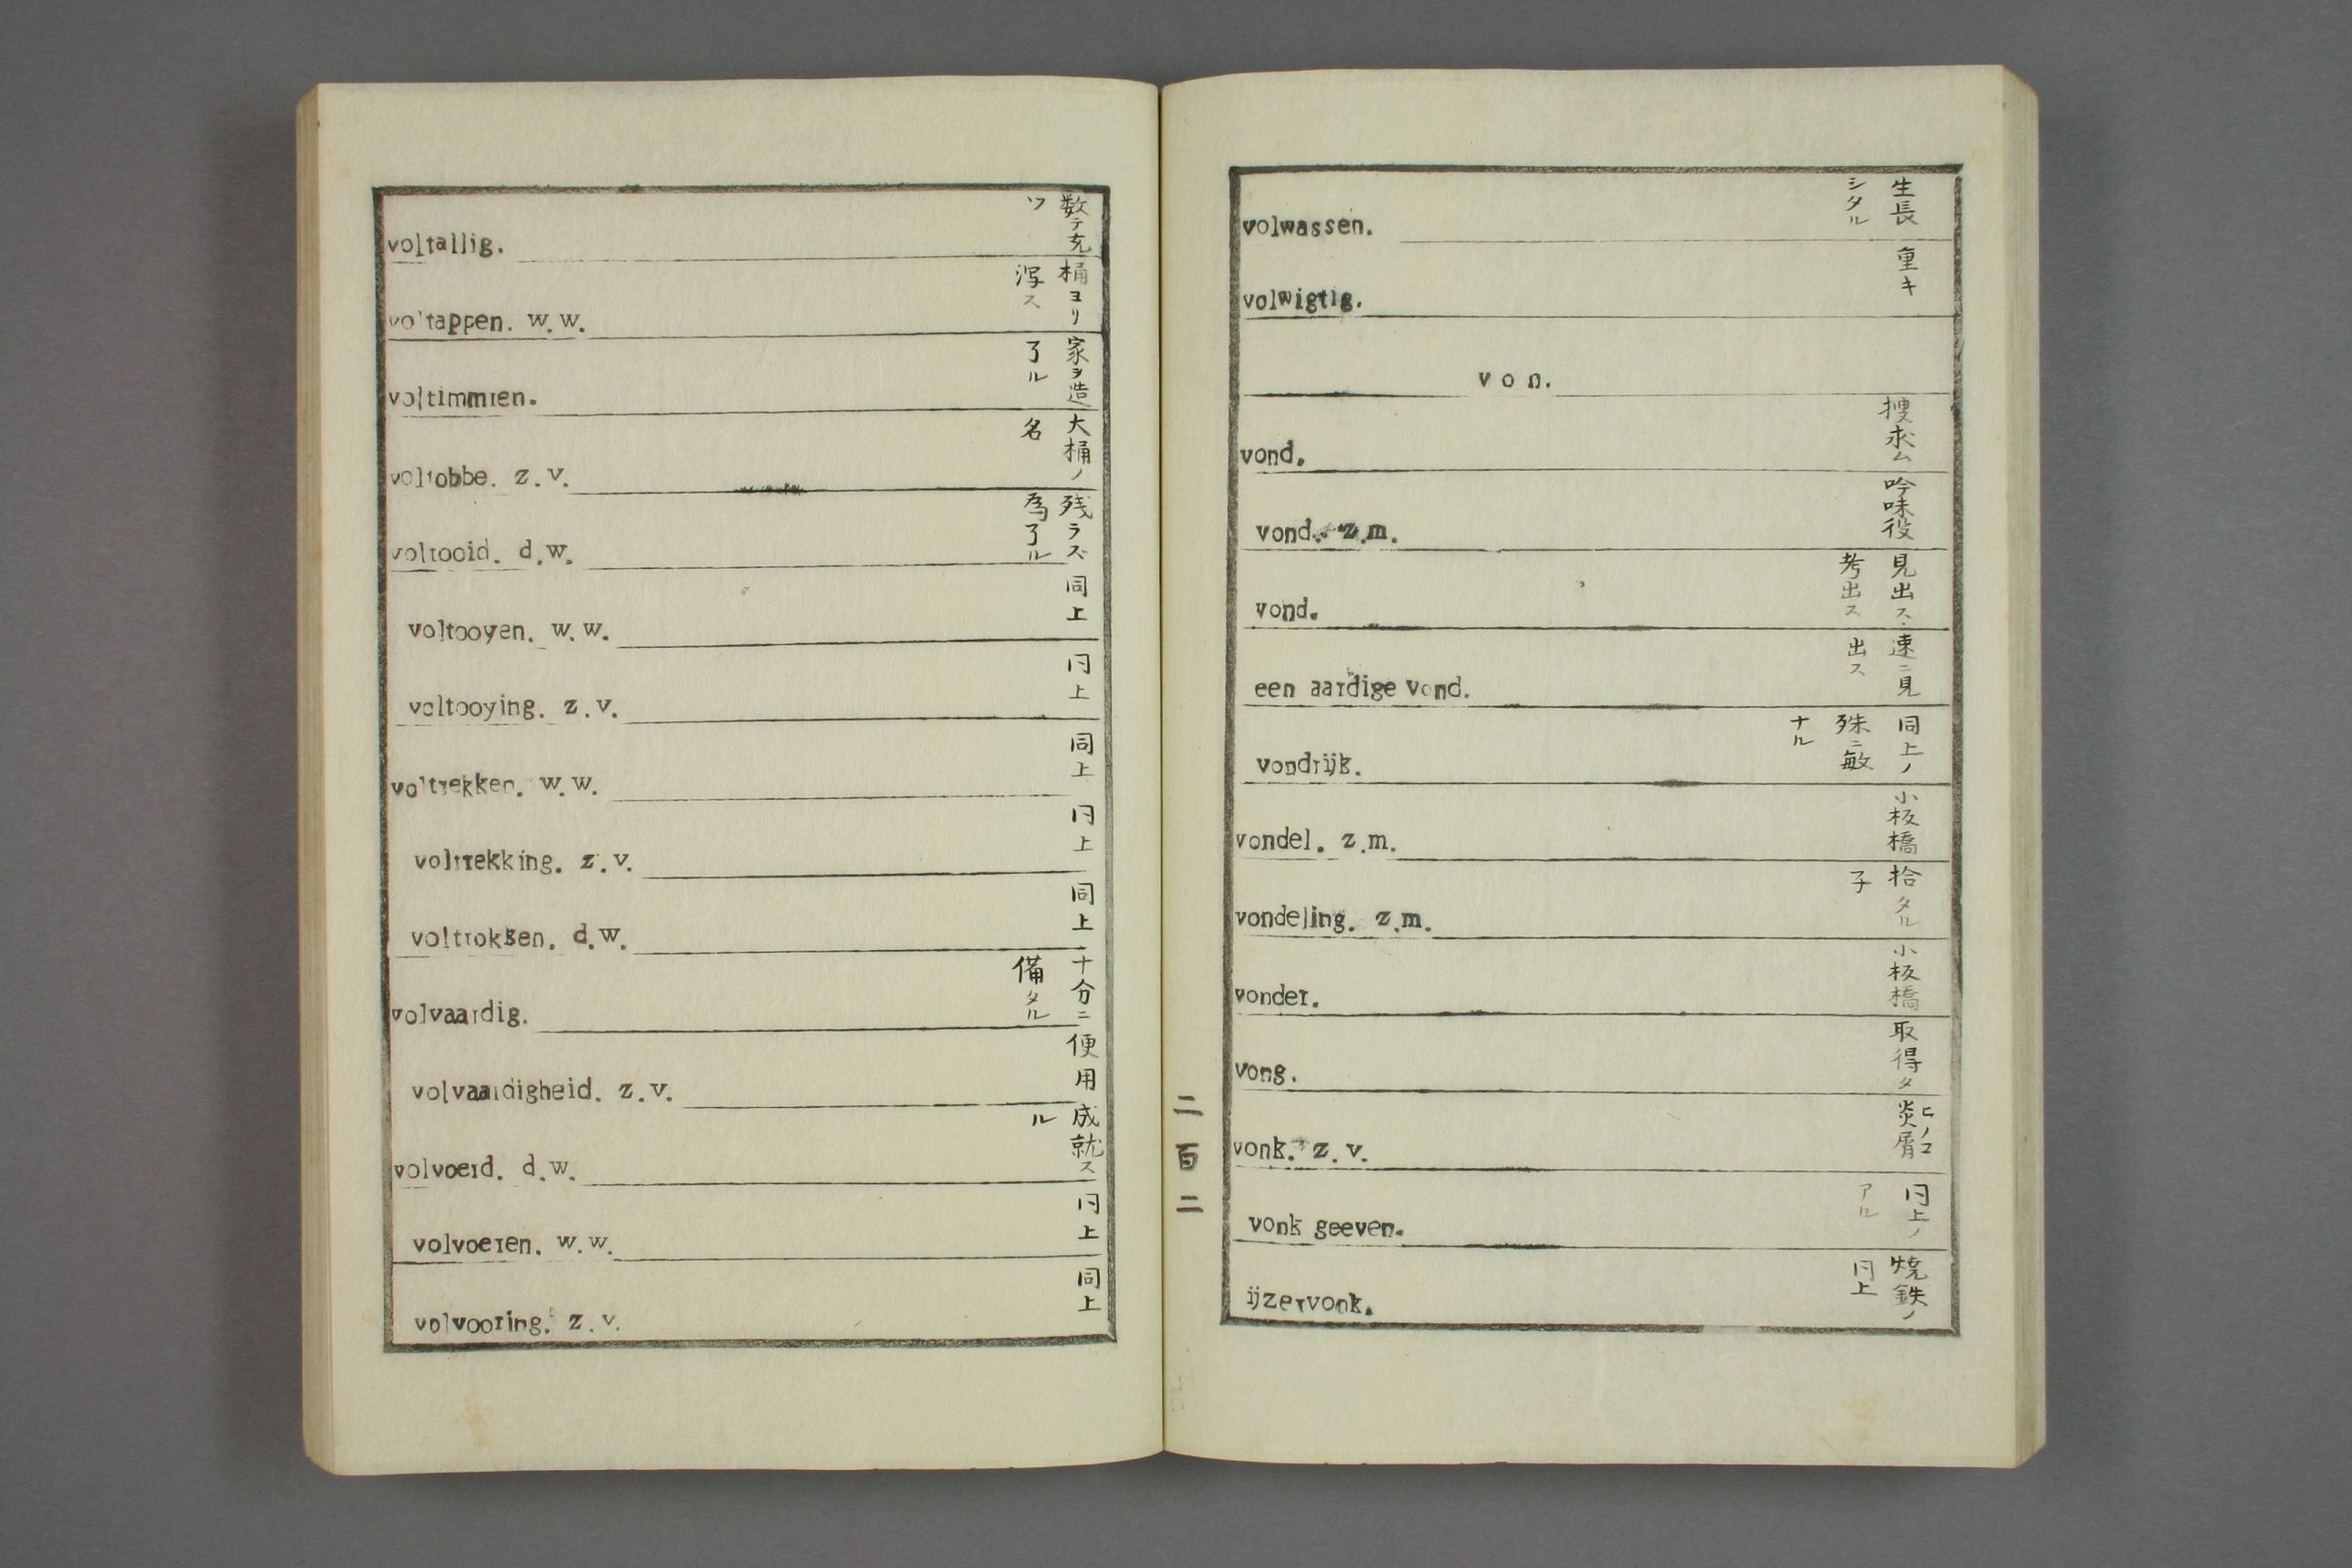 voltallig. 数テ充ツ
voltappen. w.w. 桶ヨリ浮ス
voltimmren. 家ヲ造了ル
voltobbe. z.v. 大桶ノ名
voltooid. d.w. 残ラズ為了ル
voltooyen. w.w. 同上
voltooying. z.v. 同上
voltrekken. w.w. 同上
voltrekking. z.v. 同上
voltrokken. d.w. 同上
volvaardig. 十分ニ備タル
volvaardigheid. z.v. 便用
volvoerd. d.w. 成就スル
volvoeren. w.w. 同上
volvooring. z.v. 同上
volwassen. 生長シタル
volwigtig. 重キ
von.
vond. 捜求ム
vond. z.m. 吟味役
vond. 見出ス・考出ス
een aardige vond. 速ニ見出ス
vondrijk. 同上ノ殊ニ敏ナル
vondel. z.m. 小板橋
vondeling. z.m. 拾タル子
vonder. 小板橋
vong. 取得タ
vonk. z.v. 炎屑 ヒノコ
vonk geeven. 同上ノアル
ijzervonk. 焼鉄ノ同上
二百二